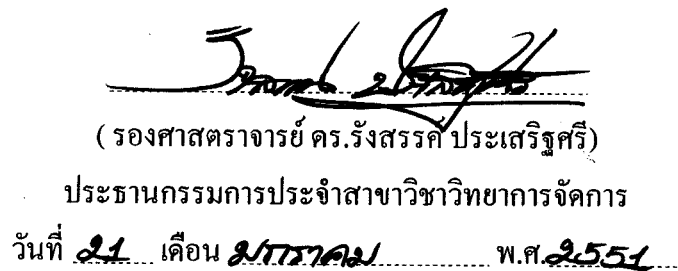 ( รองศาสตราจารย์ ดร.รังสรรค์ ประเสริฐศรี)
ประธานกรรมการประจำสาขาวิชาวิทยาการจัดการ
วันที่ 21 เดือน มกราคม พ.ศ.2551